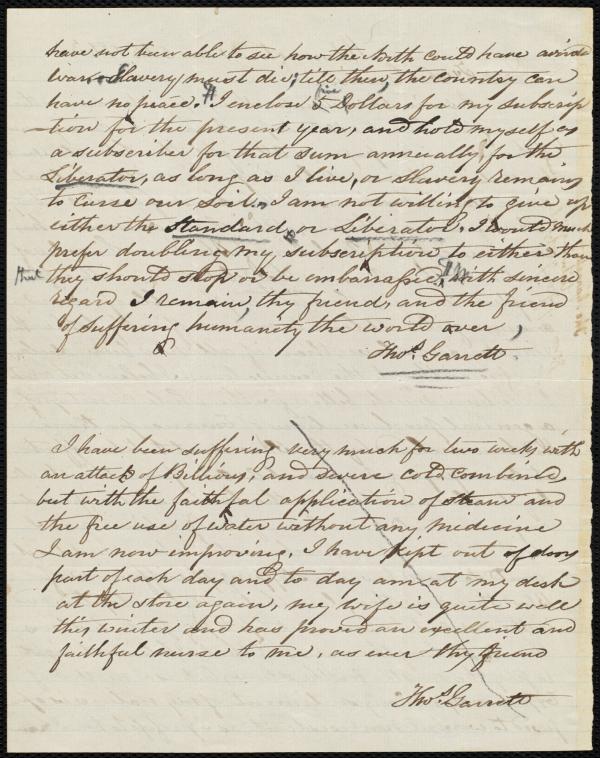 have not been able to see how the North could have avoided
war. Slavery must die; till then, the country can
have no peace. I enclose 5 Dollars for my subscrip
-tion for the present year, and hold myself as
a subscriber for that sum annually, for the
Liberator, as long as I live, or Slavery remains
to curse our soil, I am not willing to give up
either the Standard or Liberator. I would much
prefer doubling my subscription to either than
that they should stop or be embarrassed, with sincere
regard I remain, thy friend, and the friend
of suffering humanity the world over,
Thos. Garrett
I have been suffering very much for two weeks, with
an attack of Bilious, and severe cold combined,
but with the faithful application of steam and
the free use of water without any medicine
I am now improving. I have kept out of doors
part of each day and to day am at my desk
at the store again, my wife is quite well
this winter and has proved an excellent and
faithful nurse to me, as ever thy friend
Thos. Garrett